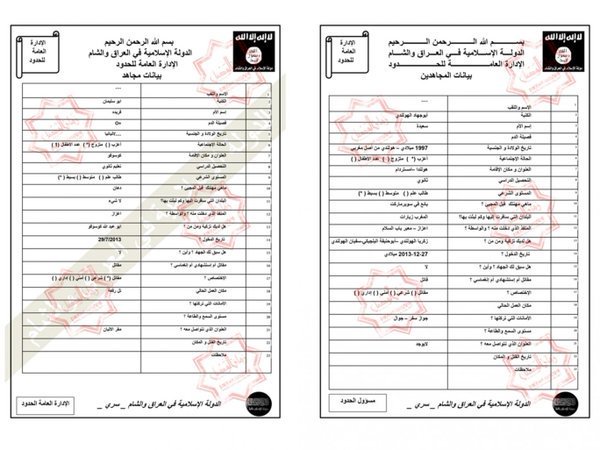 الإدارة
العامة
للحدود
بسم الله الرحمن الرحيم
الدولة الإسلامية في العراق والشام
الإدارة العامة للحدود
بيانات مجاهد
لا إله إلا الله
الاسم واللقب ----
الكنية ابو سليمان
إسم الأم فريده
فصيلة الدم O+
تاريخ الولادة و الجنسية
الحالة الاجتماعية أعزب ( ) متزوج (*) عدد الاطفال (1 )
العنوان و مكان الإقامة كوسوفو
التحصيل الدراسي تعليم ثانوي
المستوى الشرعي طالب علم ( ) متوسط ( ) بسيط (*)
ماهي مهنتك قبل المجيئ ؟ دهان
البلدان التي سافرت إليها وكم لبثت بها؟ لا شيء
المنفذ الذي دخلت منه ؟ والواسطة ؟ اعزاز
هل لديك تزكية ومن من ؟ ابو عبد الله كوسوفو
تاريخ الدخول ؟ 29/7/2013
هل سبق لك الجهاد ؟ وأين ؟ لا
مقاتل أم إستشهادي أم إنغماسي ؟ مقاتل
الإختصاص ؟ مقاتل (*) شرعي ( ) أمني ( ) إداري ( )
مكان العمل الحالي تل رفعة
الامانات التي تركتها ؟
مستوى السمع والطاعة ؟
العنوان الذي نتواصل معه ؟
تاريخ القتل و المكان
ملاحظات
الدولة الإسلامية في العراق والشام _ سري _
الإدارة العامة الحدود
الإدارة
العامة
للحدود
بسم الله الرحمن الرحيم
الدولة الإسلامية في العراق والشام
الإدارة العامة للحدود
بيانات المجاهدين
لا إله إلا الله
الاسم واللقب ----
الكنية أبوجهاد الهولندي
إسم الأم سعيدة
فصيلة الدم
تاريخ الولادة و الجنسية 1997 ميلادي – هولندي من أصل مغربي
الحالة الاجتماعية أعزب (*) متزوج ( ) عدد الاطفال ( )
العنوان و مكان الإقامة هولندا -امستردام
التحصيل الدراسي
المستوى الشرعي طالب علم ( ) متوسط ( ) بسيط (*)
ماهي مهنتك قبل المجيئ ؟ بائع في سوبرماركت
البلدان التي سافرت إليها وكم لبثت بها؟ المغرب زيارات
المنفذ الذي دخلت منه ؟ والواسطة ؟ اعزاز - معبر باب السلام
هل لديك تزكية ومن من ؟ زكريا الهولندي -ابوحنيفة البلجيكي-سفيان الهولندي
تاريخ الدخول ؟ 27-12-2013 ميلادي
هل سبق لك الجهاد ؟ وأين ؟ لا
مقاتل أم إستشهادي أم إنغماسي ؟ مقاتل
الإختصاص ؟ مقاتل ( ) شرعي ( ) أمني ( ) إداري ( )
مكان العمل الحالي
الامانات التي تركتها ؟ جواز سفر – جوال
مستوى السمع والطاعة ؟
العنوان الذي نتواصل معه ؟ لايوجد
تاريخ القتل و المكان
ملاحظات
الدولة الإسلامية في العراق والشام _ سري _
مسؤول الحدود